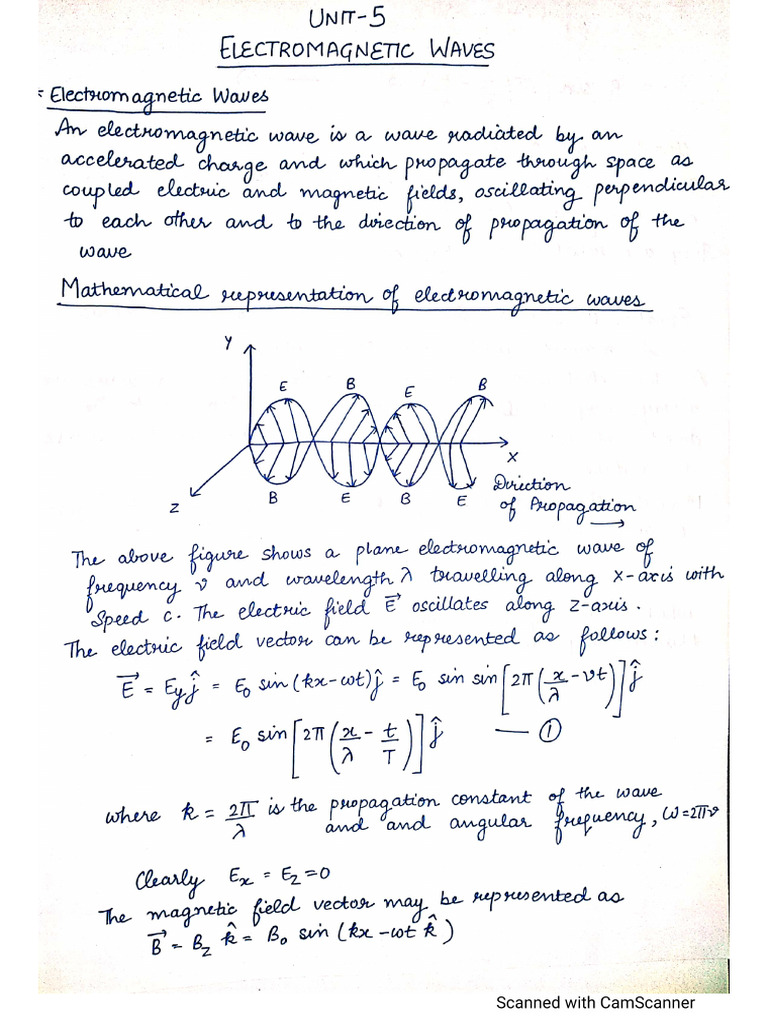 UNIT-5
ELECTROMAGNETIC WAVES
: Electromagnetic Waves
An electromagnetic wave is a wave radiated by an
accelerated charge and which propagate through space as
coupled electric and magnetic fields, oscillating perpendicular
to each other and to the direction of propagation of the
wave
Mathematical representation of electromagnetic waves
Y
E B E B
X
Z
B E B E
Direction
of Propagation →
The above figure shows a plane electromagnetic wave of
frequency ν and wavelength λ travelling along X-axis with
speed c. The electric field E⃗ oscillates along Z-axis.
The electric field vector can be represented as follows:
E⃗ = Eyĵ = E₀ sin(kx-ωt)ĵ = E₀ sin sin[2π(x/λ - νt)]ĵ
= E₀ sin[2π(x/λ - t/T)]ĵ — ①
where k = 2π/λ is the propagation constant of the wave
and and angular frequency, ω=2πν
Clearly Ex = Ez = 0
The magnetic field vector may be represented as
B⃗ = Bz k̂ = B₀ sin (kx - ωt k̂)
Scanned with CamScanner